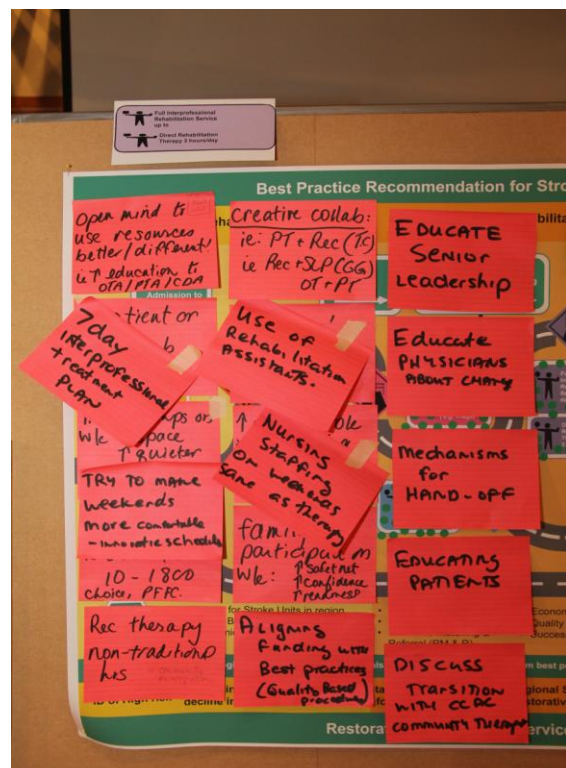 Full Interprofessional
Rehabilitation Service
up to
Direct Rehabilitation
Therapy 3 hours/day
Best Practice Recommendation for Stro
Open mind to
use resources
better/different
ie ↑ education to
OTA/PTA/CDA
Creative collab:
ie: PT + Rec (TC)
ie Rec + SLP (GG)
OT + PT
EDUCATE
Senior
Leadership
Admission to
tient or
7 day
interprofessional
treatment
PLAN
Use of
Rehabilitation
Assistants.
Educate
PHYSICIANS
ABOUT CHANGE
ps or
wk
pace
↑ quieter
Nursing
Staffing
on weekends
same as therapy
Mechanisms
for
HAND-OFF
TRY TO MAKE
weekends
more comfortable
- innovative schedules
family
participation
wk: ↑ Safetnet
↑ confidence
↑ readiness
10 - 1800
choice, PFFC.
EDUCATING
PATIENTS
for Stroke Units in region
Econom
Quality
Succes
Referral (PM & R)
Rec therapy
non-traditional
hrs
ALIGNING
Funding with
Best practices
(Quality Based
procedures)
DISCUSS
TRANSITION
WITH CCAC
COMMUNITY THERAPY
decline in
Restora
rvice